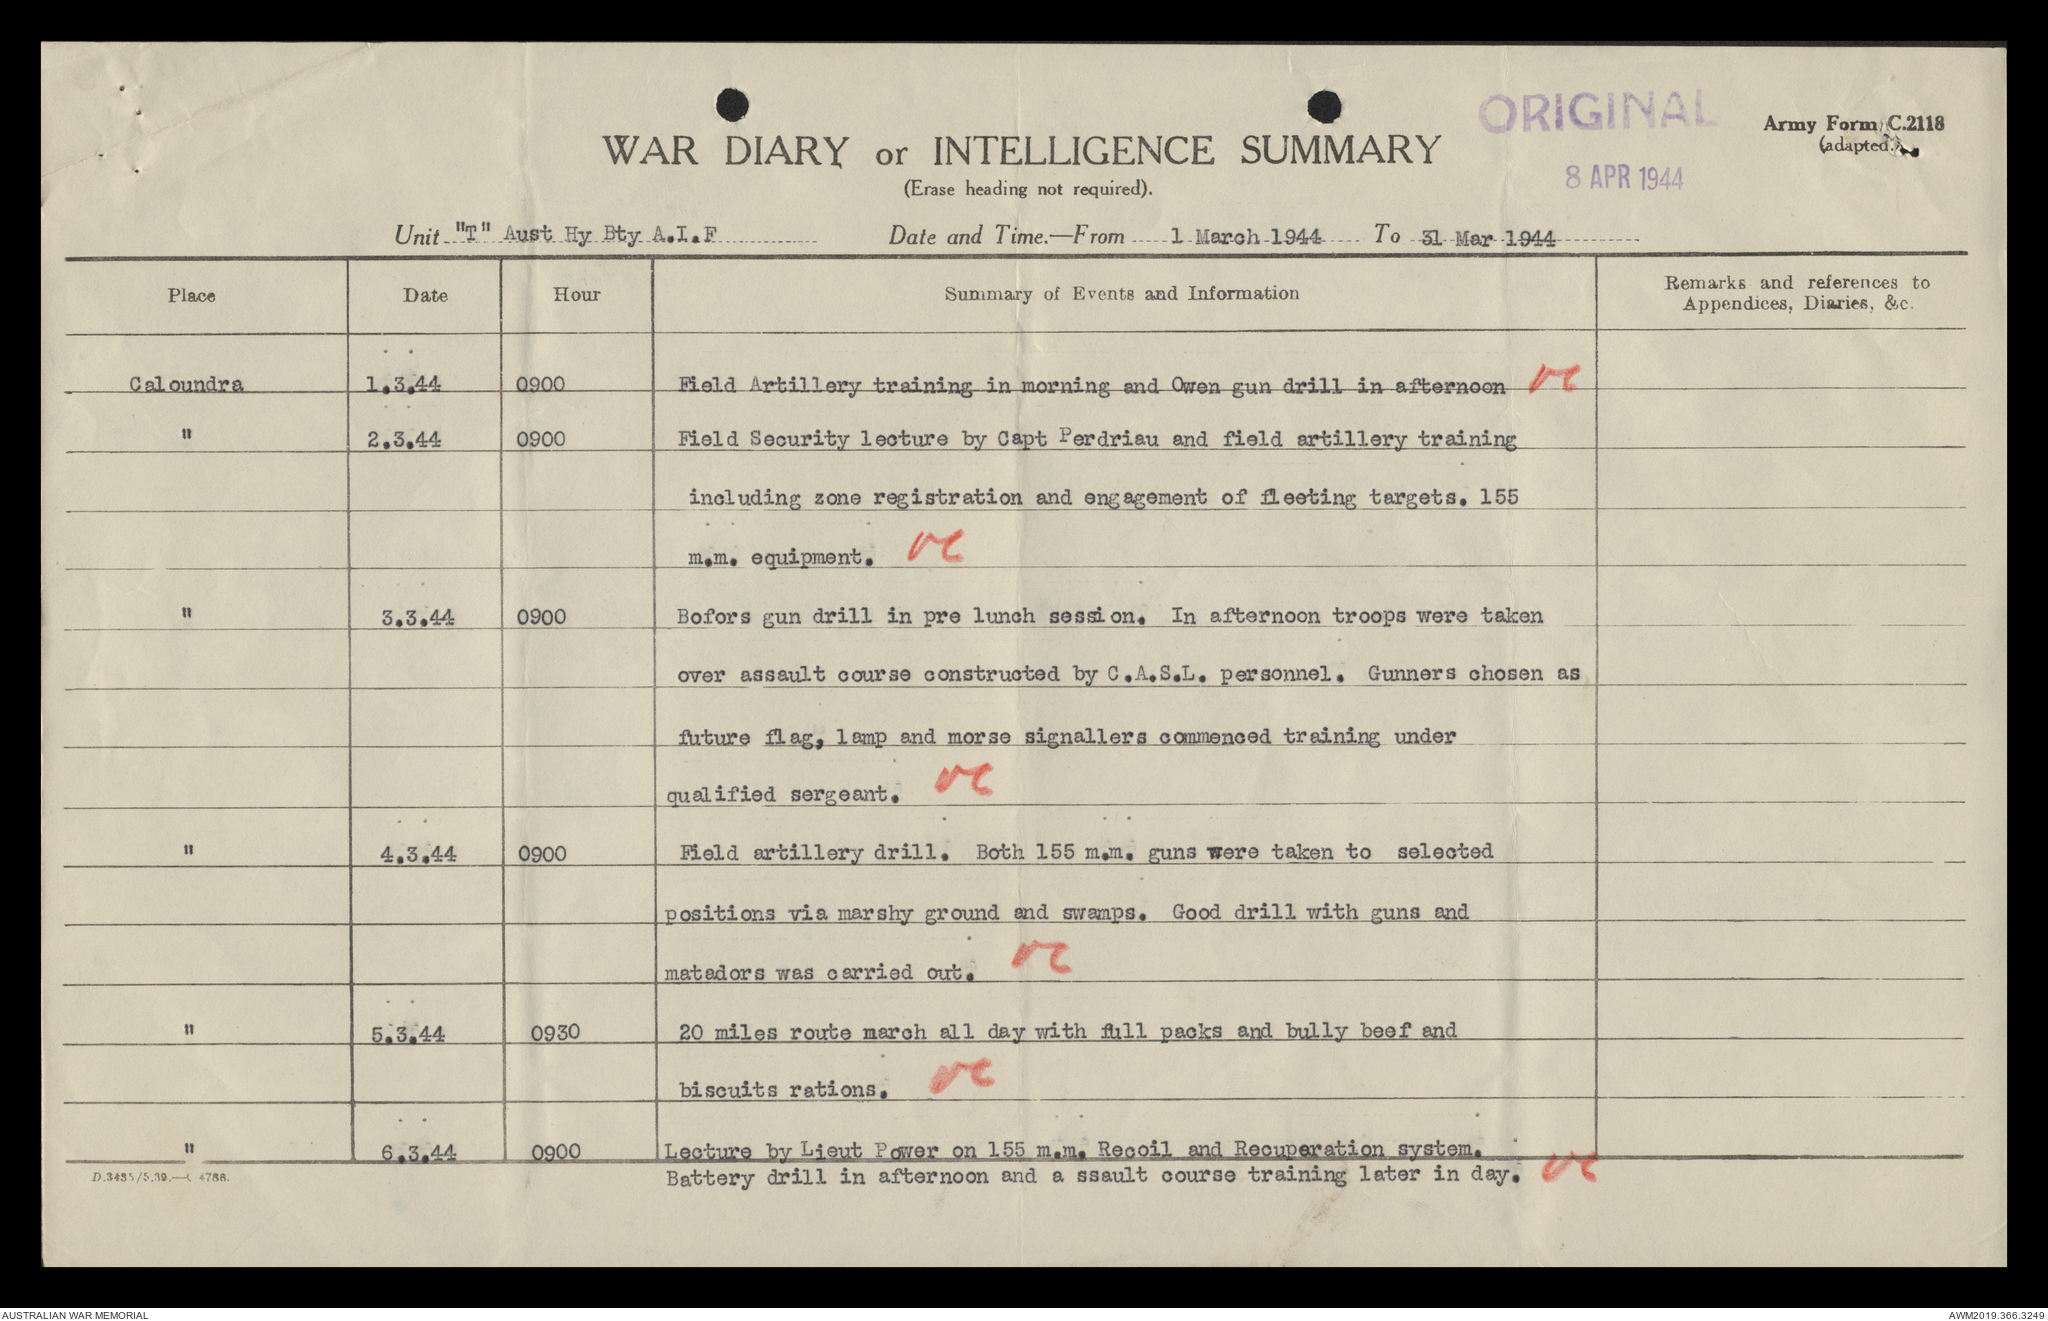 ORIGINAL
Army Form C.2118
(adapted.)
WAR DIARY or INTELLIGENCE SUMMARY
(Erase heading not required).
8 APR 1944
Unit "T" Aust Hy Bty A.I.F Date and Time.—From 1 March 1944 To 31 Mar 1944
Place Date Hour Summary of Events and Information Remarks and references to
Appendices, Diaries, &c.
Caloundra 1.3.44 0900 Field Artillery training in morning and Owen gun drill in afternoon
" 2.3.44 0900 Field Security lecture by Capt Perdriau and field artillery training
including zone registration and engagement of fleeting targets. 155
m.m. equipment.
" 3.3.44 0900 Bofors gun drill in pre lunch session. In afternoon troops were taken
over assault course constructed by C.A.S.L. personnel. Gunners chosen as
future flag, lamp and morse signallers commenced training under
qualified sergeant.
" 4.3.44 0900 Field artillery drill. Both 155 m.m. guns were taken to selected
positions via marshy ground and swamps. Good drill with guns and
matadors was carried out.
" 5.3.44 0930 20 miles route march all day with full packs and bully beef and
biscuits rations.
" 6.3.44 0900 Lecture by Lieut Power on 155 m.m. Recoil and Recuperation system.
Battery drill in afternoon and a ssault course training later in day.
AUSTRALIAN WAR MEMORIAL
AWM2019.366.3249